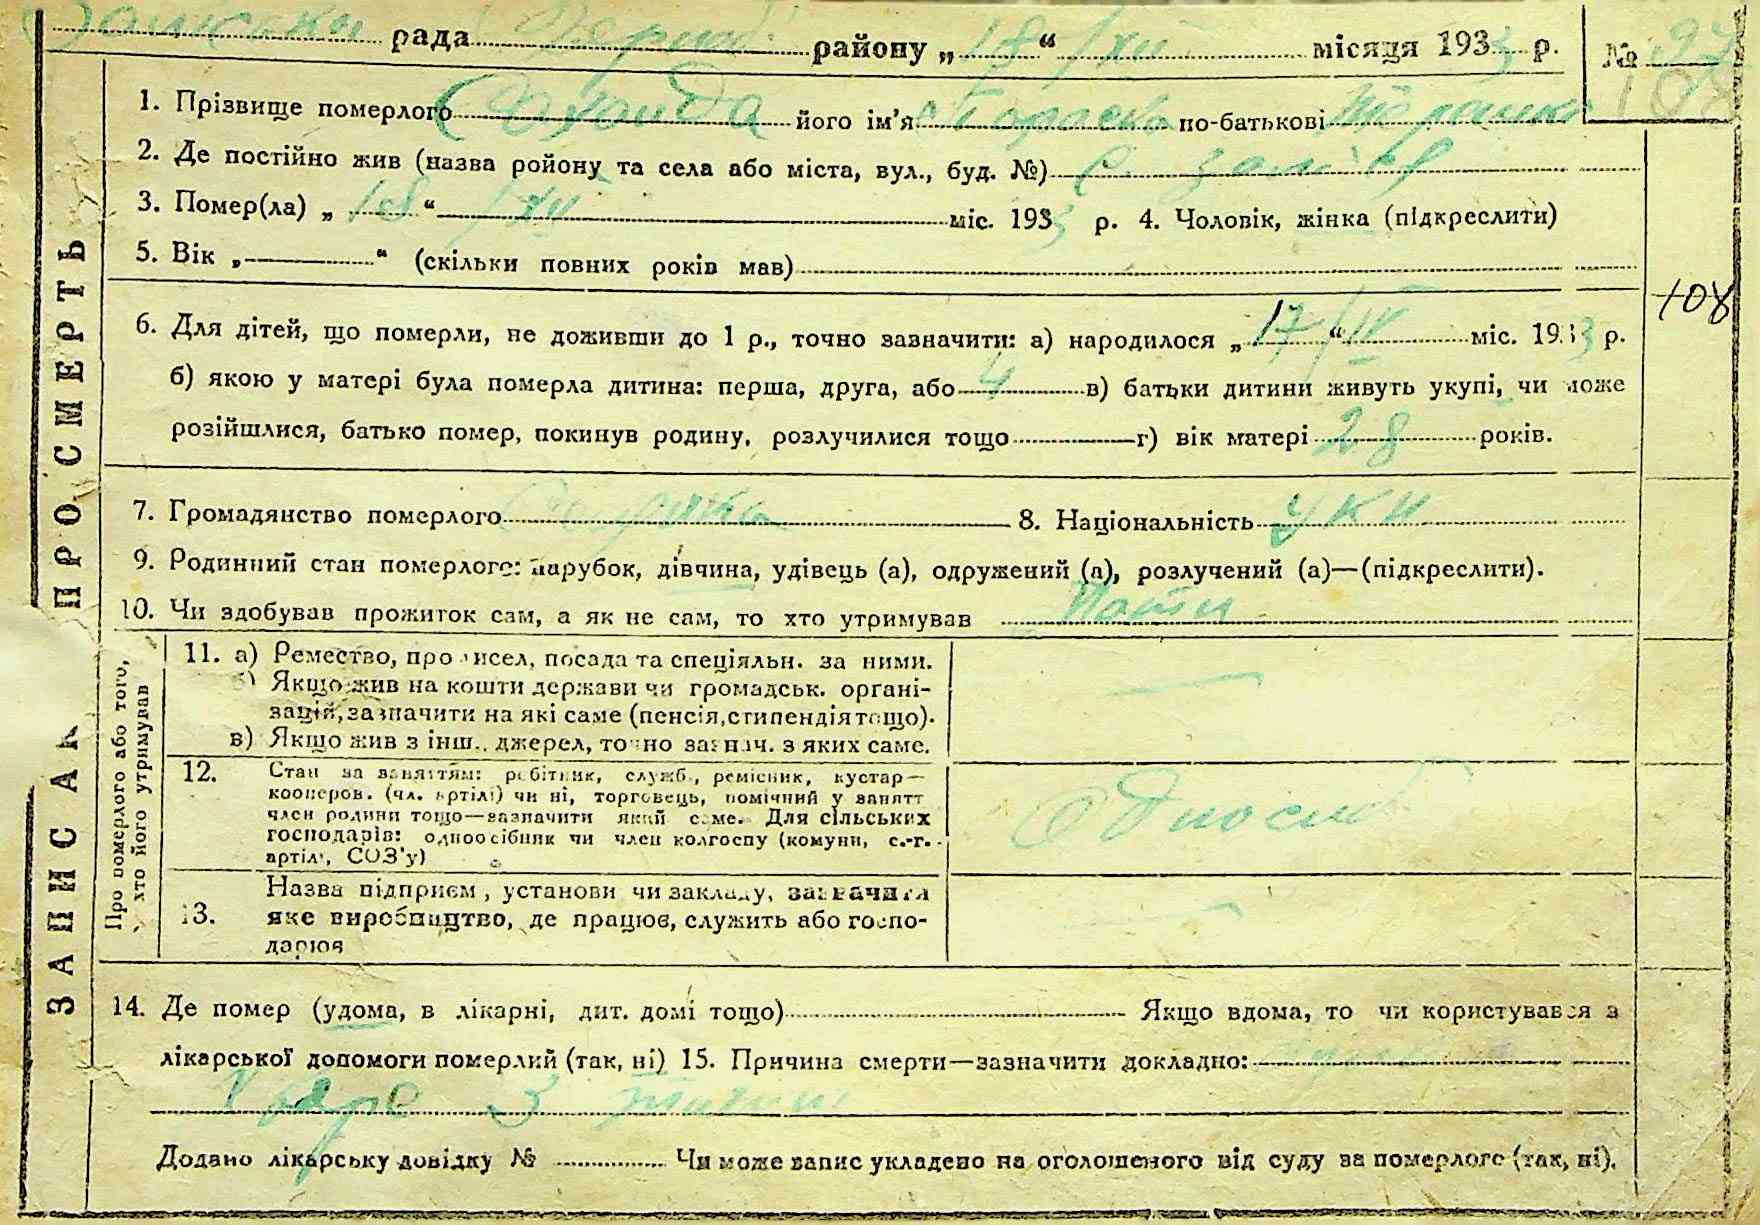 рада району „ 18 “ /XII місяця 1933 р. № 97
108
1. Прізвище померлого його ім'я Параска по-батькові
2. Де постійно жив (назва ройону та села або міста, вул., буд. №) с.
3. Помер(ла) „ 18 “ /XII міс. 1933 р. 4. Чоловік, жінка (підкреслити)
5. Вік „ “ (скільки повних років мав)
108
6. Для дітей, що померли, не доживши до 1 р., точно зазначити: а) народилося „ 17 “ /IV міс. 1933 р.
б) якою у матері була померла дитина: перша, друга, або 4 в) батьки дитини живуть укупі, чи може
розійшлися, батько помер, покинув родину, розлучилися тощо г) вік матері 28 років.
7. Громадянство померлого 8. Національність укр
9. Родинний стан померлого: парубок, дівчина, удівець (а), одружений (а), розлучений (а)—(підкреслити).
10. Чи здобував прожиток сам, а як не сам, то хто утримував
ЗАПИС ПРО СМЕРТЬ
Про померлого або того, хто його утримував
11. а) Ремество, промисел, посада та спеціяльн. за ними.
б) Якщо жив на кошти держави чи громадськ. органі-
зацій, зазначити на які саме (пенсія, стипендія тощо).
в) Якщо жив з інш. джерел, точно зазнач. з яких саме.
12. Стан за заняттям: робітник, служб., ремісник, кустар—
кооперов. (чл. артілі) чи ні, торговець, помічний у занятт
член родини тощо—зазначити який саме. Для сільських
господарів: одноосібник чи член колгоспу (комуни, с.-г.
артілі, СОЗ'у)
Одноосіб
13. Назва підприєм., установи чи закладу, зазначити
яке виробництво, де працює, служить або госпо-
дарює
14. Де помер (удома, в лікарні, дит. домі тощо) Якщо вдома, то чи користувався з
лікарської допомоги померлий (так, ні) 15. Причина смерти—зазначити докладно:
Додано лікарську довідку № Чи може запис укладено на оголошеного від суду за померлого (так, ні).